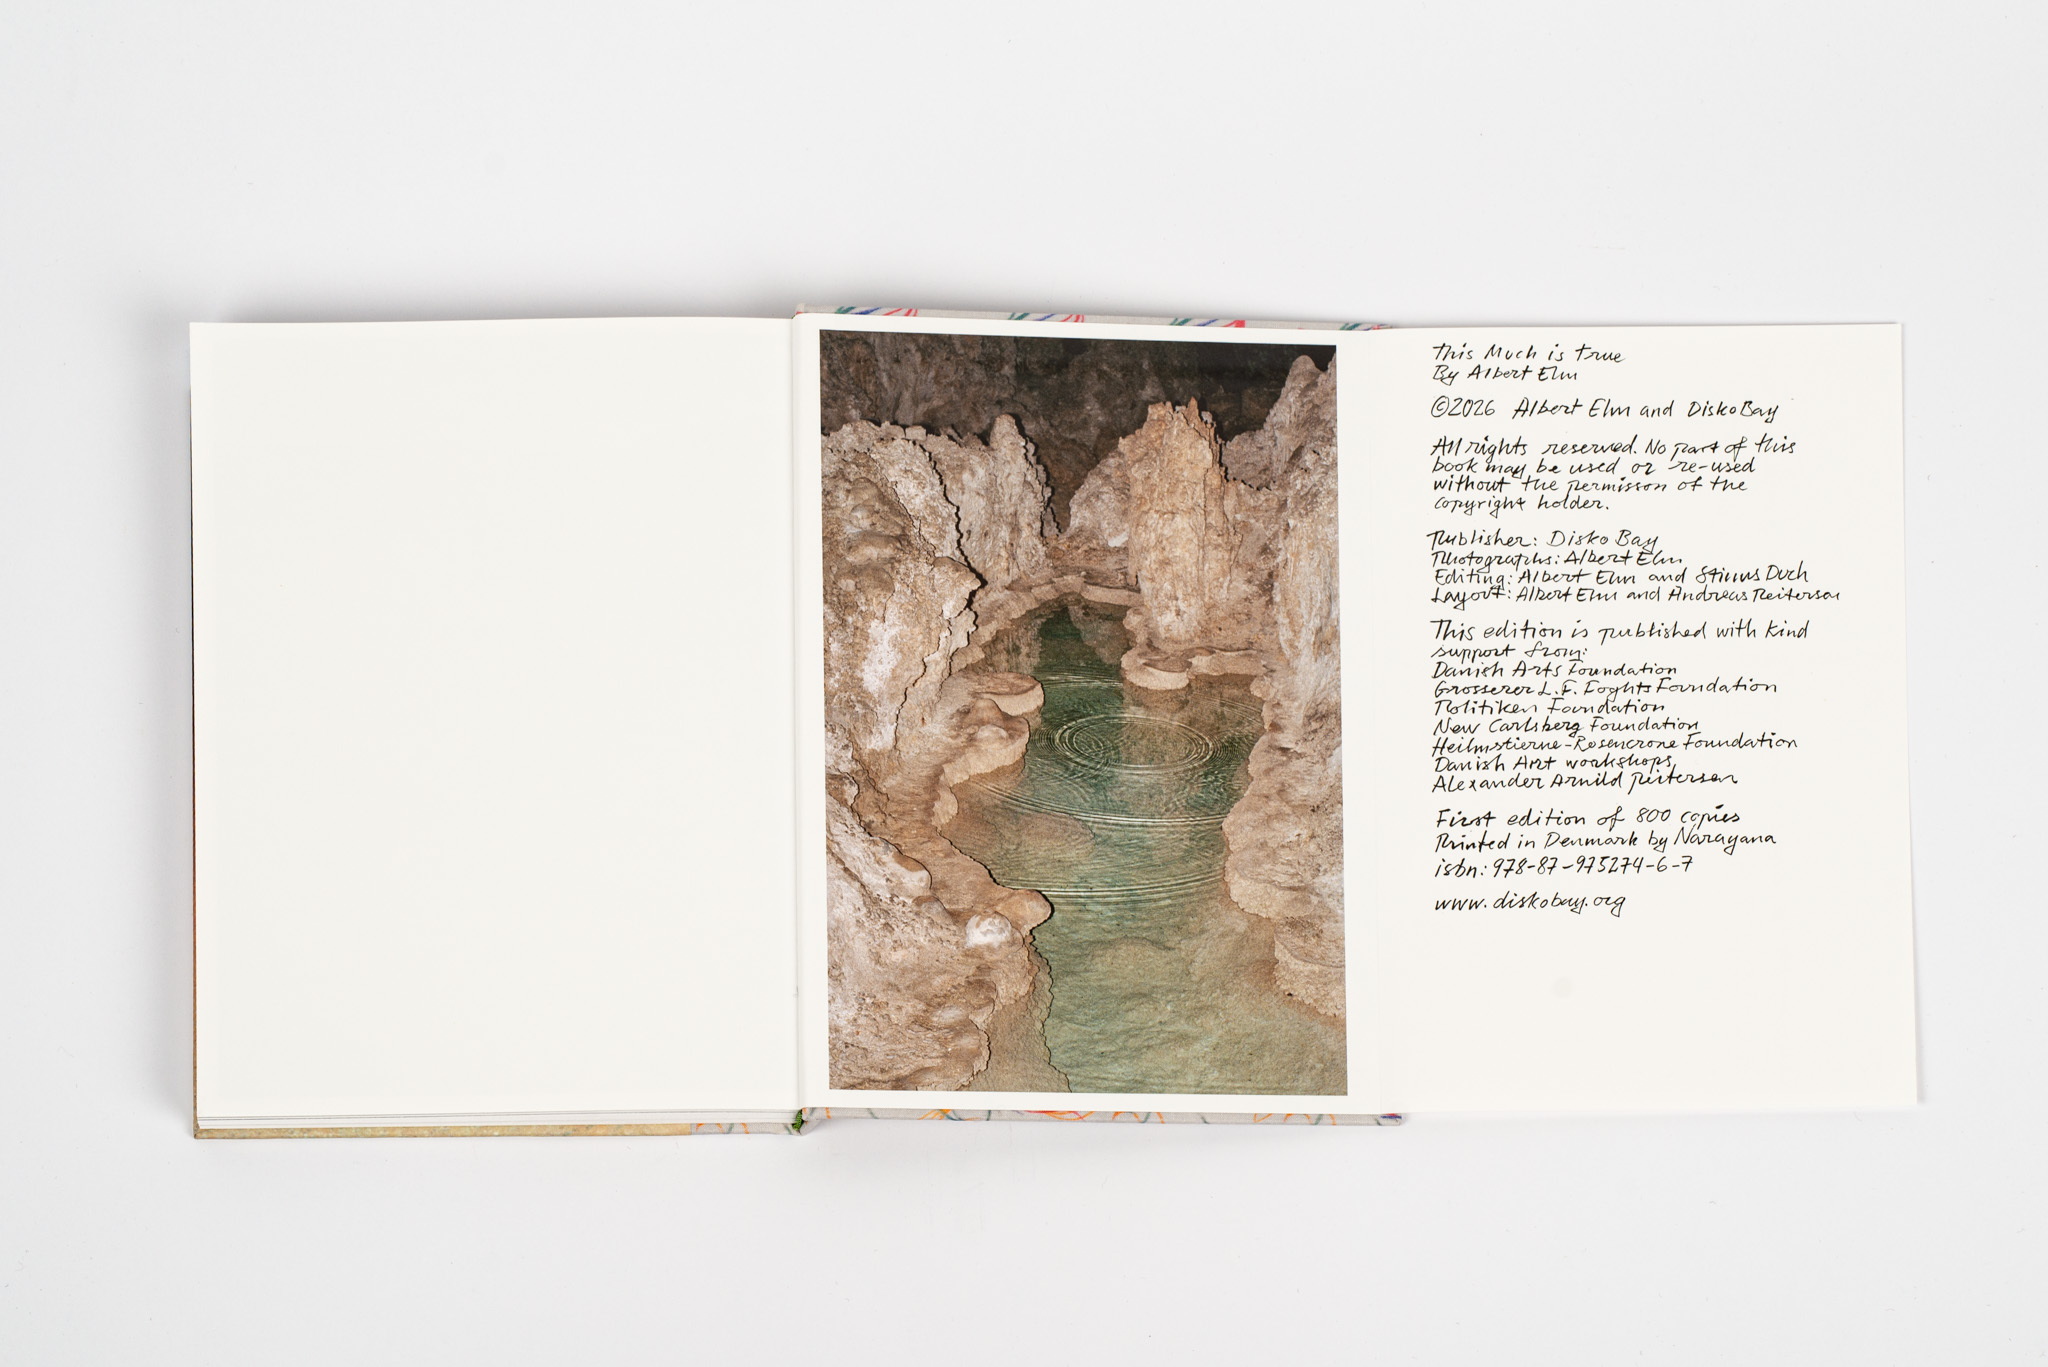 This Much is true
By Albert Elm
©2026 Albert Elm and Disko Bay
All rights reserved. No part of this
book may be used or re-used
without the permisson of the
copyright holder.
Publisher: Disko Bay
Photographs: Albert Elm
Editing: Albert Elm and Stinus Duch
Layout: Albert Elm and Andreas Peiterson
This edition is published with kind
support from:
Danish Arts Foundation
Grosserer L.F. Foghts Foundation
Politiken Foundation
New Carlsberg Foundation
Heilmstierne-Rosencrone Foundation
Danish Art workshops,
Alexander Arnild Peitersen
First edition of 800 copies
Printed in Denmark by Narayana
isbn: 978-87-975274-6-7
www.diskobay.org